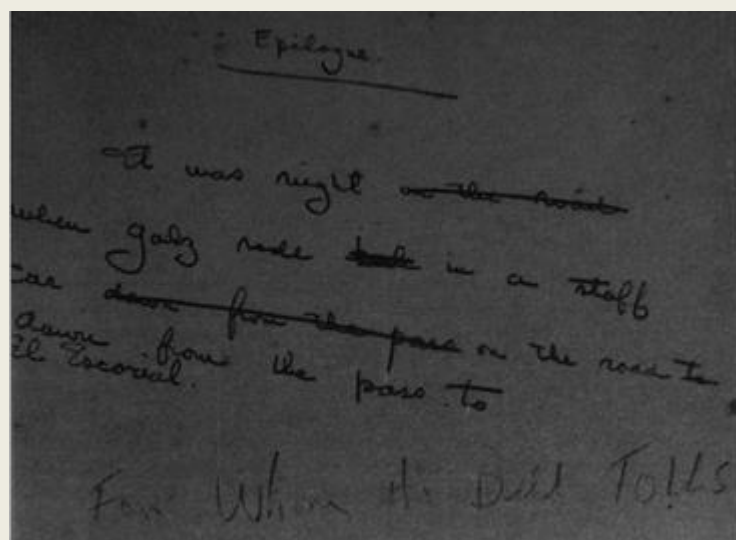 Epilogue.
It was night on the road
when Golz rode back in a staff
car down from the pass on the road to
down from the pass to
El Escorial.
For Whom the Bell Tolls